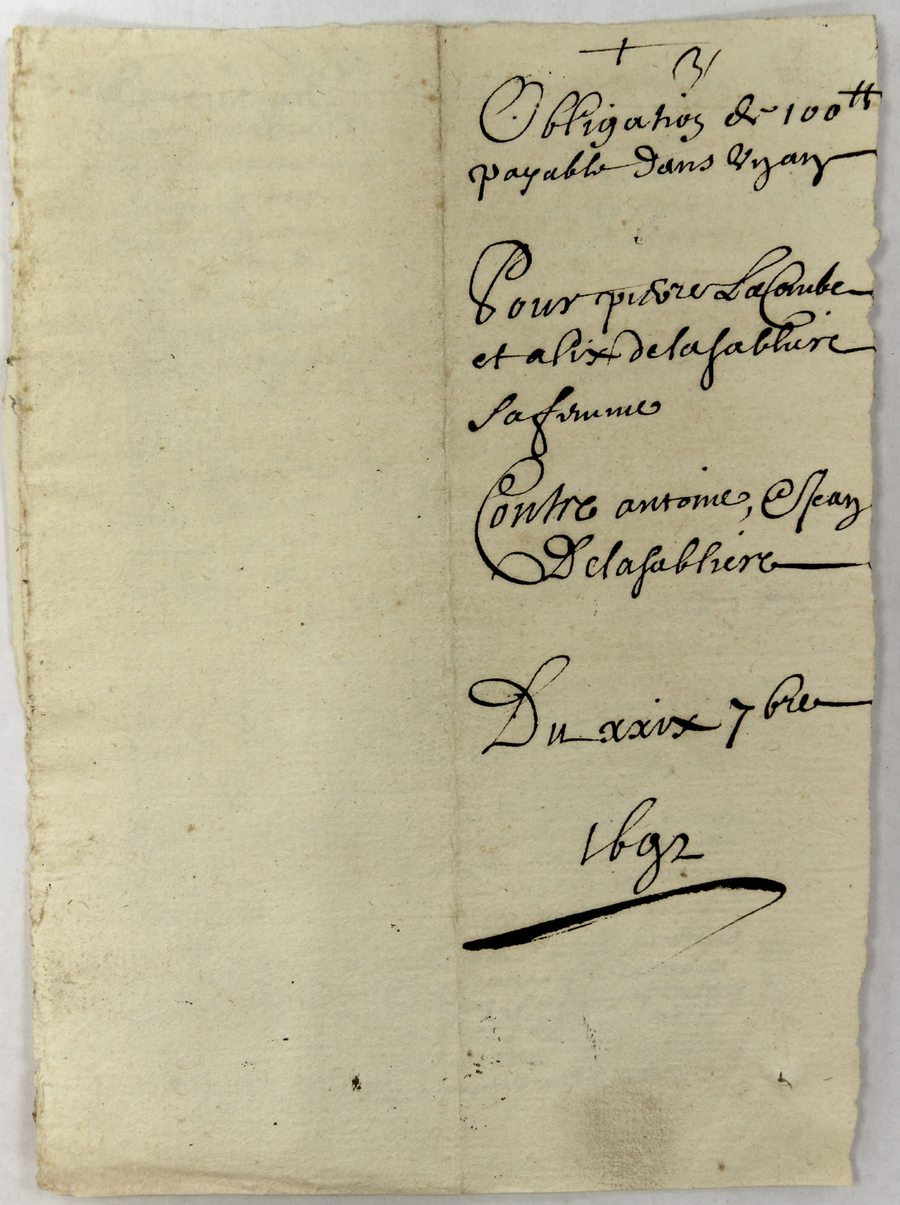 +
3
Obligation de 100tt
payable dans Vn an
Pour pierre LaCombe
et alix delasabliere
sa femme
Contre antoine, & Jean
Delasabliere
Du xxix 7bre
1692